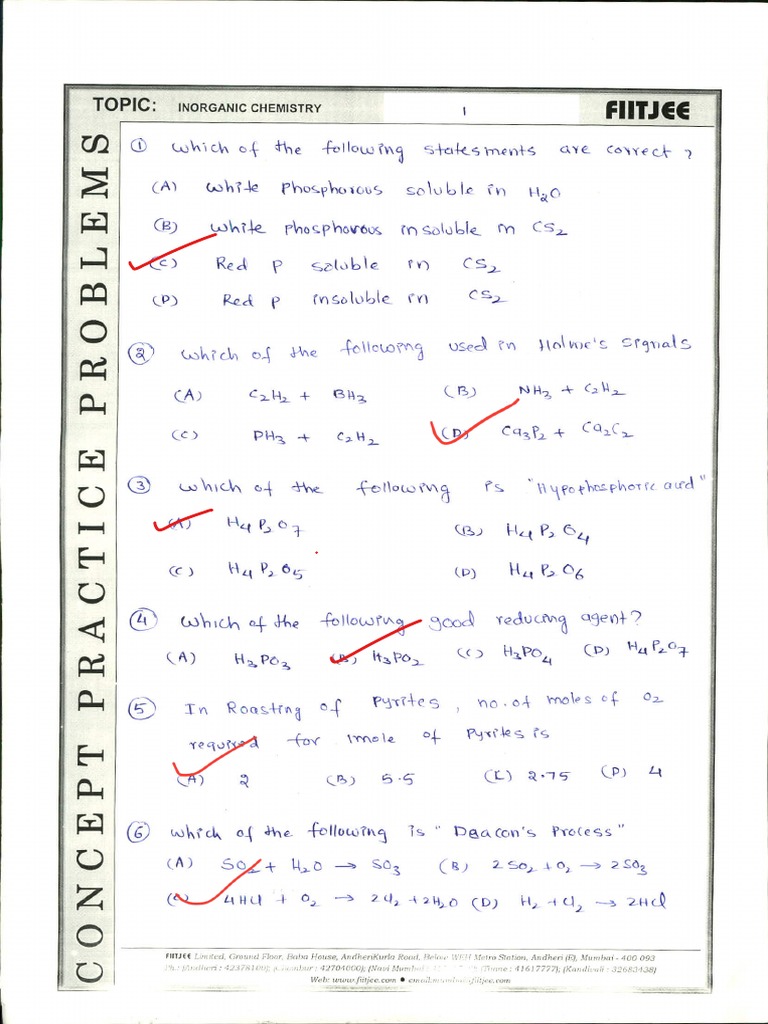 TOPIC: INORGANIC CHEMISTRY 1 FIITJEE
CONCEPT PRACTICE PROBLEMS
① Which of the following statesments are correct?
(A) White phosphorous soluble in H₂O
(B) White phosphorous insoluble in CS₂
(C) Red P soluble in CS₂
(D) Red P insoluble in CS₂
② Which of the following used in Holme's signals
(A) C₂H₂ + BH₃ (B) NH₃ + C₂H₂
(C) PH₃ + C₂H₂ (D) Ca₃P₂ + Ca₂C₂
③ Which of the following is "Hypophosphoric acid"
(A) H₄P₂O₇ (B) H₄P₂O₄
(C) H₄P₂O₅ (D) H₄P₂O₆
④ Which of the following good reducing agent?
(A) H₃PO₃ (B) H₃PO₂ (C) H₃PO₄ (D) H₄P₂O₇
⑤ In Roasting of Pyrites, no. of moles of O₂
required for 1mole of Pyrites is
(A) 2 (B) 5.5 (C) 2.75 (D) 4
⑥ Which of the following is "Deacon's Process"
(A) SO₂ + H₂O → SO₃ (B) 2SO₂ + O₂ → 2SO₃
(C) 4HCl + O₂ → 2Cl₂ + 2H₂O (D) H₂ + Cl₂ → 2HCl
FIITJEE Limited, Ground Floor, Baba House, AndheriKurla Road, Below WEH Metro Station, Andheri (E), Mumbai - 400 093
Ph.: (Andheri : 42378100); : 42704000); (Navi Mumbai : (Thane : 41617777); (Kandivali : 32683438)
Web: www.fiitjee.com ● email: